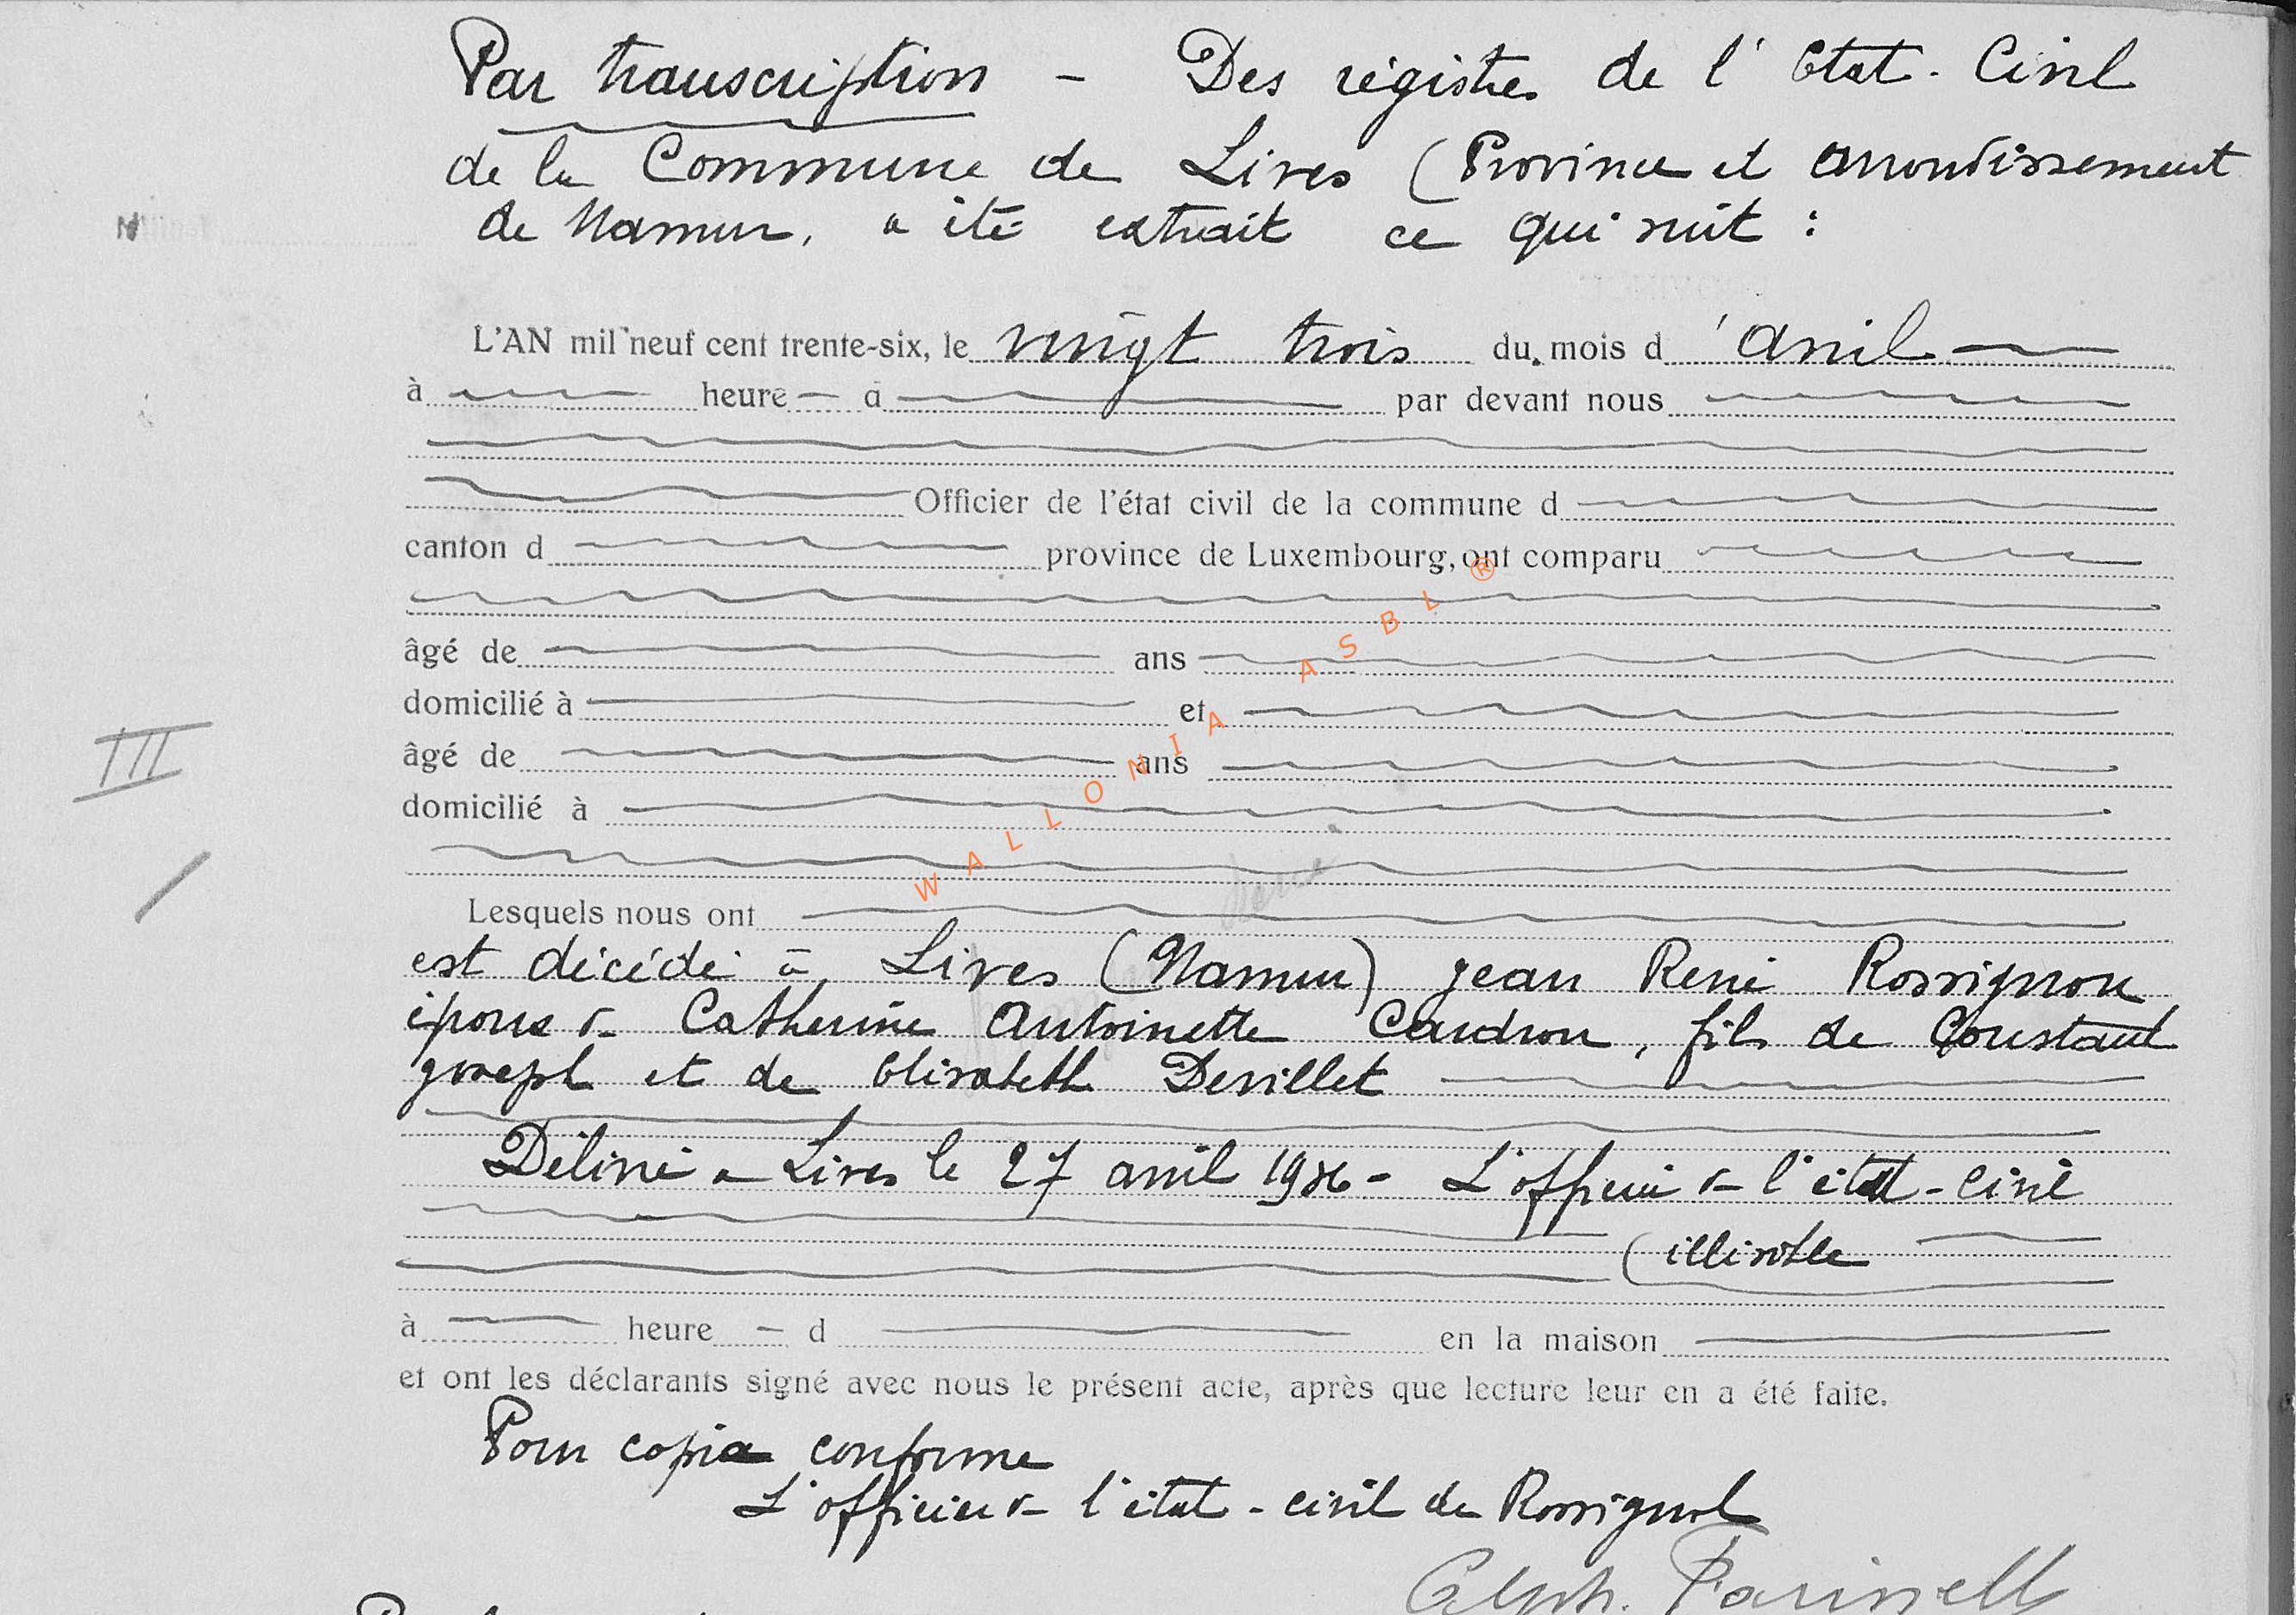 Par transcription - Des régistres de l'Etat-Civil
de la Commune de Lives (Province et arrondissement
de Namur, a été extrait ce qui suit :
L'AN mil neuf cent trente-six, le vingt trois du mois d'avril
à heure à par devant nous
Officier de l'état civil de la commune d
canton d province de Luxembourg, ont comparu
âgé de ans
domicilié à et
âgé de ans
domicilié à
WALLONIA ASBL ®
Lesquels nous ont
III
est décédé à Lives (Namur) Jean René Rossignon
époux de Catherine Antoinette Caudron, fils de Constant
Joseph et de Elisabeth Devillet
Délivré à Lives le 27 avril 1936 - L'officier de l'état-civil
(illisible
à heure d en la maison
et ont les déclarants signé avec nous le présent acte, après que lecture leur en a été faite.
Pour copie conforme
L'officier de l'état-civil de Rossignol
Alph.